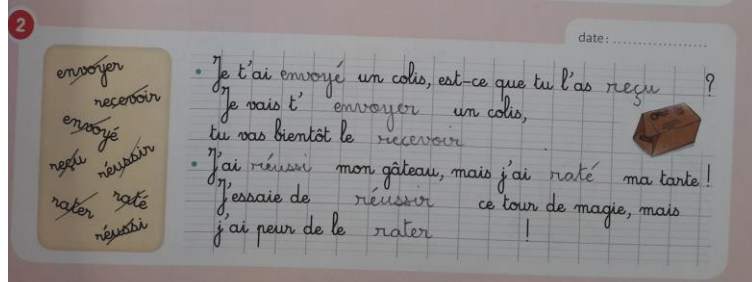 2
date: ....................
envoyer
recevoir
envoyé
reçu
réussir
rater
raté
réussi
• Je t'ai envoyé un colis, est-ce que tu l'as reçu ?
Je vais t' envoyer un colis,
tu vas bientôt le recevoir
• J'ai réussi mon gâteau, mais j'ai raté ma tarte !
J'essaie de réussir ce tour de magie, mais
j'ai peur de le rater !